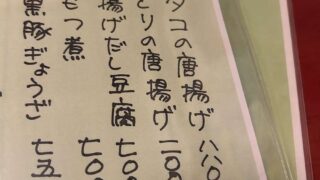 タコの唐揚げ 八八〇
とりの唐揚げ 七〇〇
揚げだし豆腐 七〇〇
もつ煮 七〇
黒豚ぎょうざ 七五